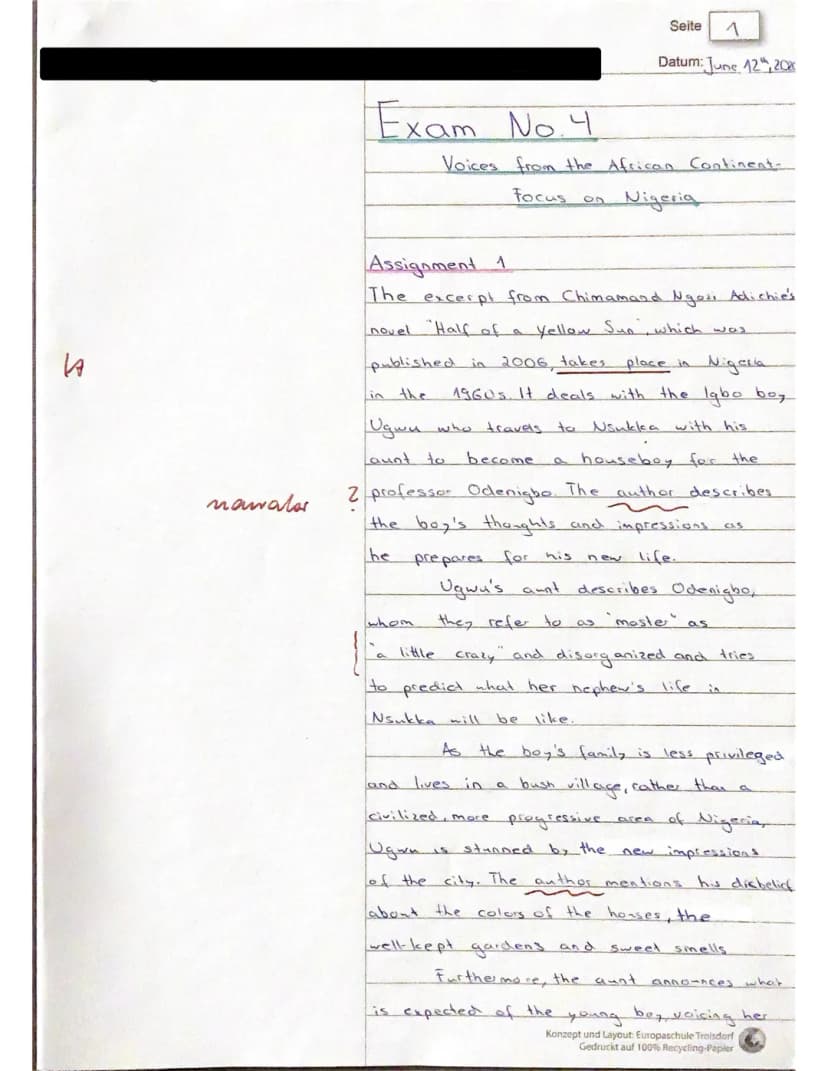 Seite 1
Datum: June 12th, 20
Exam No. 4
Voices from the African Continent-
Focus on Nigeria
Assignment 1
The excerpt from Chimamand Ngozi Adichie's
novel "Half of a Yellow Sun", which was
published in 2006, takes place in Nigeria
in the 1960s. It deals with the Igbo boy
Ugwu who travels to Nsukka with his
aunt to become a houseboy for the
narrator ? professor Odenigbo. The author describes
the boy's thoughts and impressions as
he prepares for his new life.
Ugwu's aunt describes Odenigbo,
whom they refer to as "master" as
"a little crazy" and disorganized and tries
to predict what her nephew's life in
Nsukka will be like.
As the boy's family is less privileged
and lives in a bush village, rather than a
civilized, more progressive area of Nigeria,
Ugwu is stunned by the new impressions
of the city. The author mentions his disbelief
about the colors of the houses, the
well-kept gardens and sweet smells
Furthermore, the aunt announces what
is expected of the young boy, voicing her
Konzept und Layout: Europaschule Troisdorf
Gedruckt auf 100% Recycling-Papier